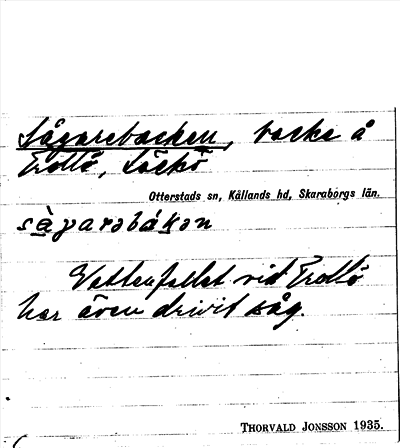 Sågarebacken, backe å
Trollö, Säckö
Otterstads sn, Kållands hd, Skaraborgs län.
sàgarəbákən
Vattenfallet vid Trollö
har även drivit såg.
THORVALD JONSSON 1935.